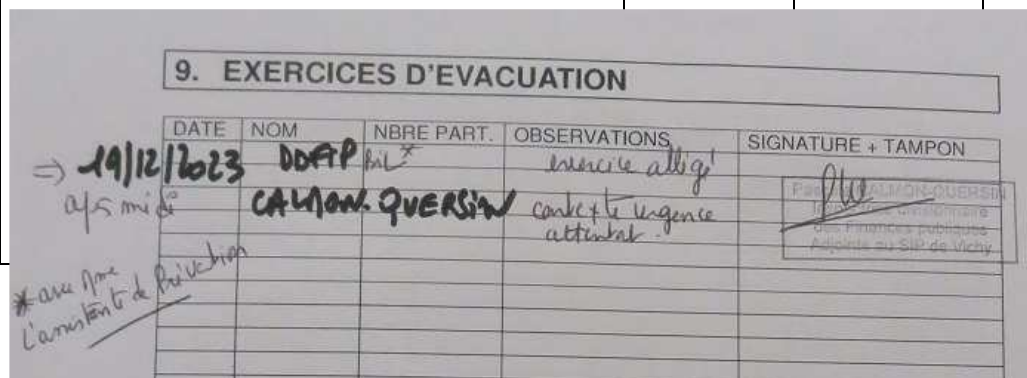 9. EXERCICES D'EVACUATION
DATE NOM NBRE PART. OBSERVATIONS SIGNATURE + TAMPON
⇒ 19/12/2023 DDFIP * exercice allégé
CALMON. QUERSIN contexte urgence
attentat.
CALMON-QUERSIN
divisionnaire
des Finances publiques
Adjointe au SIP de Vichy
* avec Mme
L'assistante de Prévention